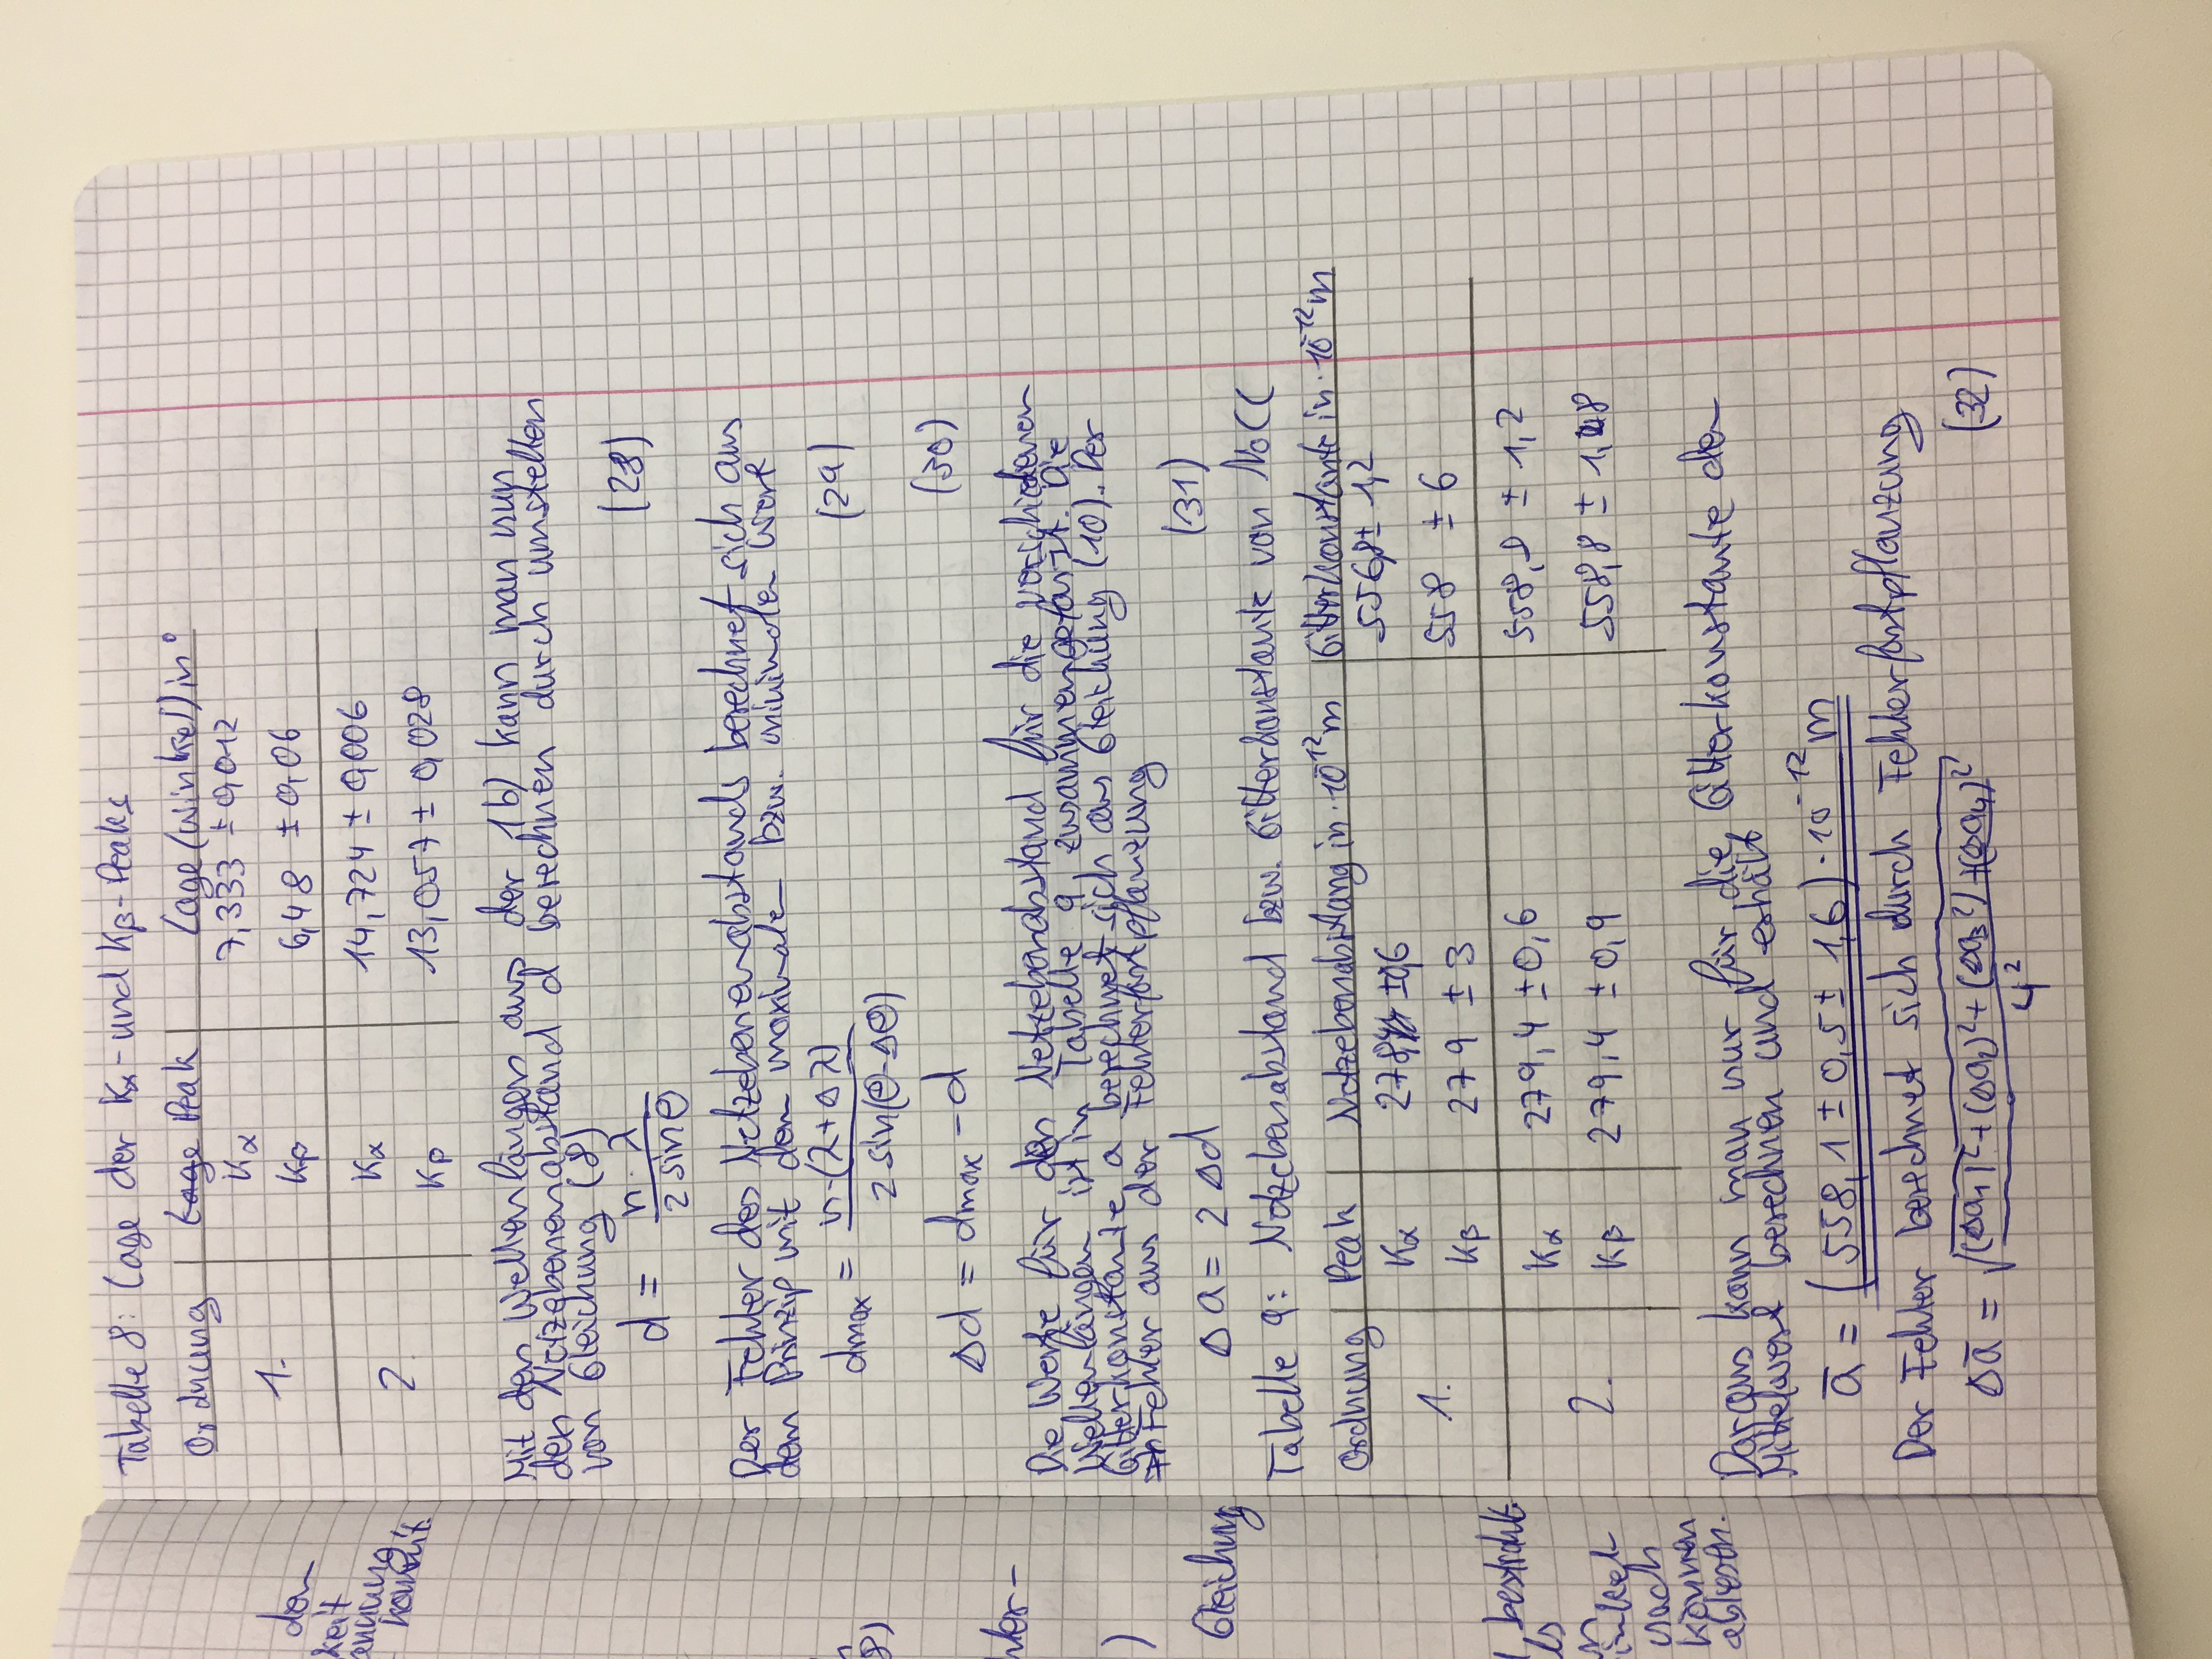 Tabelle 8: Lage der Kα- und Kβ-Peaks
Ordnung Lage Peak Lage (Winkel) in °
1. Kα 7,333 ± 0,012
Kβ 6,48 ± 0,06
2. Kα 14,724 ± 0,006
Kβ 13,057 ± 0,028
Mit den Wellenlängen aus der 1b) kann man nun
den Netzebenenabstand d berechnen durch umstellen
von Gleichung (8)
d = n·λ / 2 sin Θ (28)
Der Fehler des Netzebenenabstands berechnet sich aus
dem Prinzip mit dem maximalen bzw. minimalen Wert
dmax = n·(λ+Δλ) / 2 sin(Θ-ΔΘ) (29)
Δd = dmax - d (30)
Die Werte für den Netzebenabstand für die verschiedenen
Wellenlängen ist in Tabelle 9 zusammengefasst. Die
Gitterkonstante a berechnet sich aus Gleichung (10). Der
Fehler aus der Fehlerfortpflanzung
Δa = 2 Δd (31)
Tabelle 9: Netzebenabstand bzw. Gitterkonstante von NaCl
Ordnung Peak Netzebenabstang in ·10⁻¹²m Gitterkonstante in ·10⁻¹²m
1. Kα 278,4 ± 0,6 556,8 ± 1,2
Kβ 279 ± 3 558 ± 6
2. Kα 279,4 ± 0,6 558,8 ± 1,2
Kβ 279,4 ± 0,9 558,8 ± 1,8
Daraus kann man nur für die Gitterkonstante den
Mittelwert berechnen und erhält
a̅ = (558,1 ± 0,5 ± 1,6)·10⁻¹² m
Der Fehler berechnet sich durch Fehlerfortpflanzung
Δa̅ = √((Δa₁)²+(Δa₂)²+(Δa₃²)+(Δa₄)² / 4²) (32)
den
keit
kommt.
8)
)
Gleichung
bestrahlt
nach
können
ablesen.